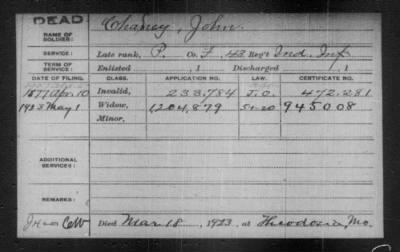 DEAD
NAME OF SOLDIER: Chaney, John.
SERVICE: Late rank, P. Co. F, 43 Reg't Ind. Inf.
TERM OF SERVICE: Enlisted , 1 Discharged , 1
DATE OF FILING. CLASS. APPLICATION NO. LAW. CERTIFICATE NO.
1877 Apr. 10 Invalid, 233,784 472.281
1923 May 1 Widow, 1204,879 945008
Minor,
ADDITIONAL SERVICES:
REMARKS:
Died Mar 18, 1923, at Theodosia, Mo.